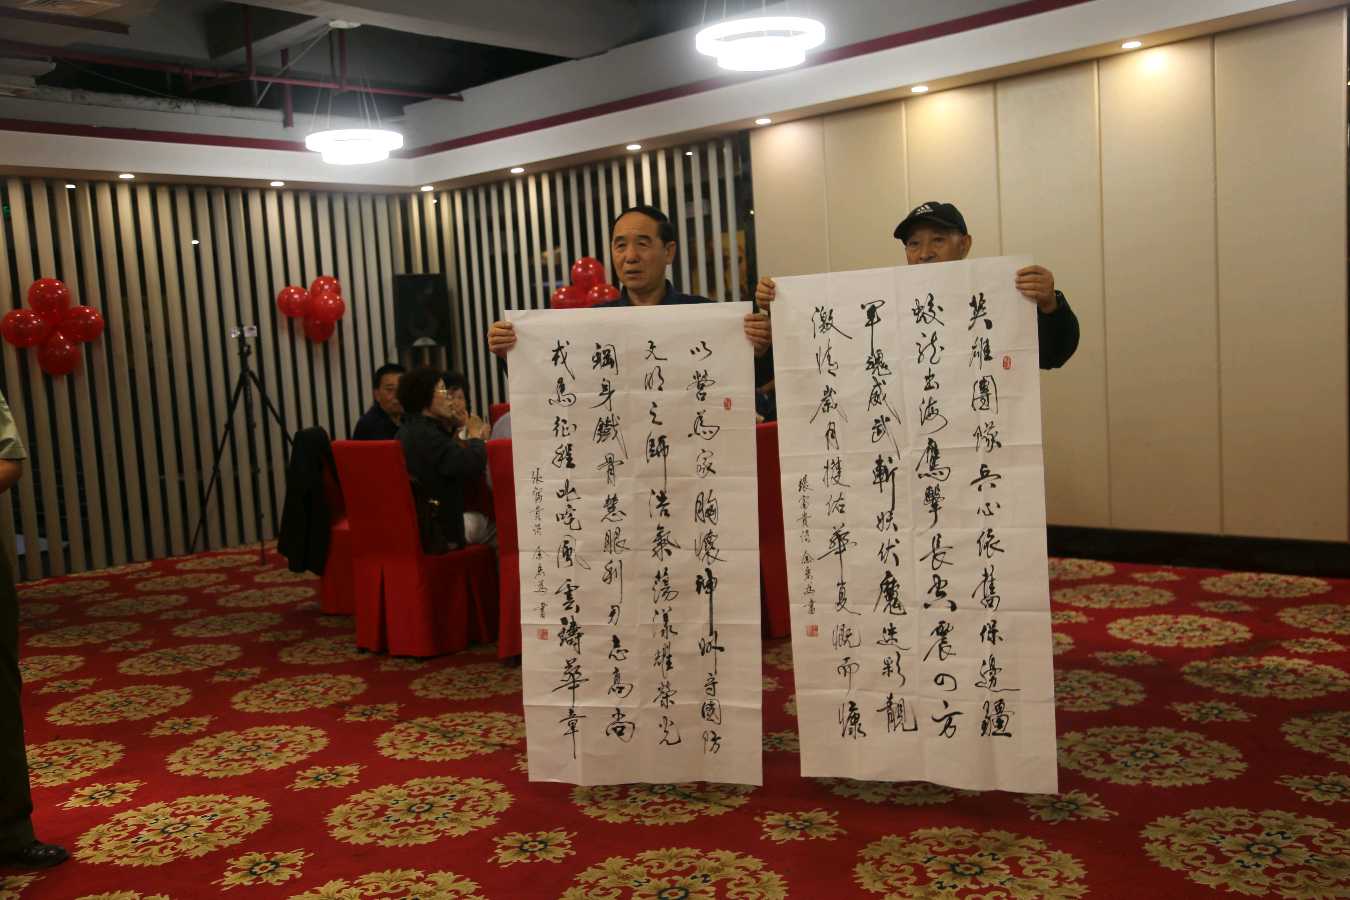 英雄團隊兵心依舊保邊疆
蛟龍出海鷹擊長空震四方
軍魂威武斬妖伏魔迷彩靚
激情歲月擭佑華夏慨而慷
張富貴詩
書
以營為家胸懷神州守國防
文明之師浩氣蕩漾耀榮光
鋼身鐵骨慧眼利刃志高尚
戎馬征程叱咤風雲譜華章
張富貴詩
書